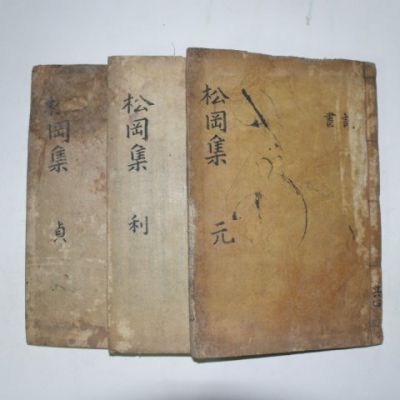 松岡集 元
松岡集 利
松岡集 貞